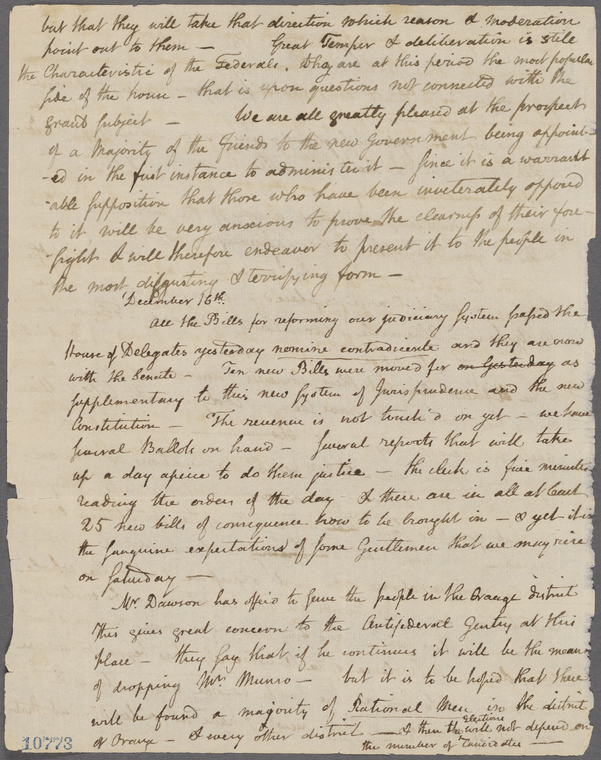 but that they will take that direction which reason & moderation
point out to them — Great Temper & deliberation is stile
the Characteristic of the Federals. They are at this period the most popular
side of the house — that is upon questions not connected with the
grand subject — We are all greatly pleased at the prospect
of a Majority of the friends to the new Government being appoint-
-ed in the first instance to administer it — since it is a warrant
-able supposition that those who have been inveterately opposed
to it will be very anxious to prove the clearness of their fore-
-sight & will therefore endeavor to present it to the people in
the most disgusting & terrifying form —
December 16th.
All the Bills for reforming our judiciary System passed the
House of Delegates yesterday nemine contradicente and they are now
with the Senate — Ten new Bills were moved for on Yesterday as
supplementary to this new System of Jurisprudence and the new
Constitution — The revenue is not touch'd on yet — we have
several Ballots on hand — several reports that will take
up a day apiece to do them justice — the clerk is five minutes
reading the orders of the day & there are in all at least
25 new bills of consequence now to be brought in — & yet it is
the sanguine expectations of some Gentlemen that we may rise
on Saturday —
Mr. Dawson has offer'd to serve the people in the Orange district
This gives great concern to the Antifederal Gentry at this
place — they say that if he continues it will be the means
of dropping Mr. Munro — but it is to be hoped that there
will be found a majority of Rational Men in the district
of Orange — & every other district — & then the elections will not depend on
the number of Candidates —
10773